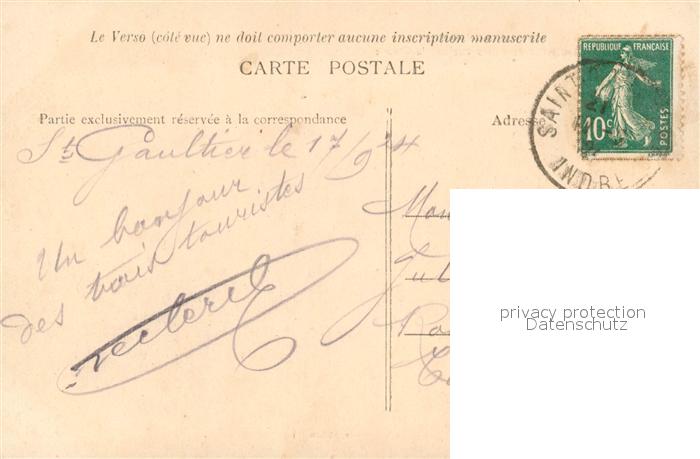 Le Verso (côté vue) ne doit comporter aucune inscription manuscrite
CARTE POSTALE
RÉPUBLIQUE FRANÇAISE
10c
POSTES
SAINT
INDRE
Partie exclusivement réservée à la correspondance
Adresse
St Gaultier le 17/9 24
Un bonjour
des trois touristes
Leclerc
privacy protection
Datenschutz